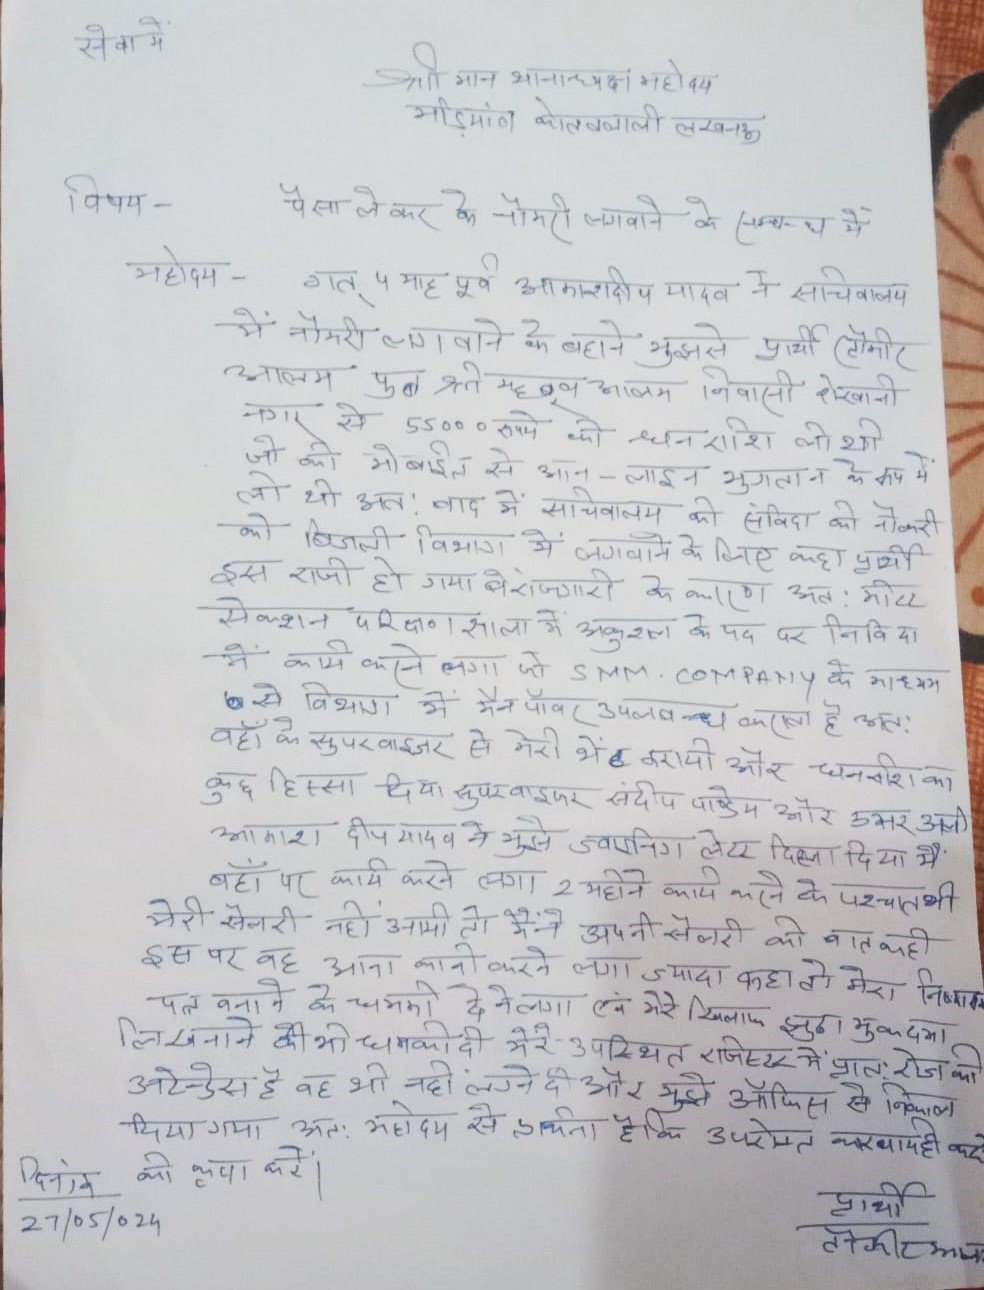 सेवा में
श्रीमान थानाध्यक्ष महोदय
मड़ियांव कोतवाली लखनऊ
विषय - पैसा लेकर के नौकरी लगवाने के सम्बन्ध में
महोदय - गत् 5 माह पूर्व आकाशदीप यादव ने सचिवालय
में नौकरी लगवाने के बहाने मुझसे प्रार्थी
आलम पुत्र श्री महबूब आलम निवासी शेखानी
नगर से 55000 रुपये की धनराशि ली थी
जो की मोबाईल से आन-लाइन भुगतान के रूप में
ली थी अत: बाद में सचिवालय की संविदा की नौकरी
को बिजली विभाग में लगवाने के लिए कहा प्रार्थी
इस राजी हो गया बेरोजगारी के कारण अत: मीटर
सेक्शन परिक्षण साला में अकुशल के पद पर निविदा
में कार्य करने लगा जो SMM. COMPANY के माध्यम
से विभाग में मैन पॉवर उपलबन्ध कराता है अत:
वहाँ के सुपरवाइजर से मेरी भेंट करायी और धनराशि का
कुछ हिस्सा दिया सुपरवाइजर संदीप पाण्डेय और
आकाश दीप यादव ने मुझे ज्वाएनिंग लेटर दिला दिया मैं
वहाँ पर कार्य करने लगा 2 महीने कार्य करने के पश्चात भी
मेरी सैलरी नहीं आयी तो मैंने अपनी सैलरी की बात कही
इस पर वह आना कानी करने लगा ज्यादा कहा तो मेरा
पत्र बनाने के धमकी देने लगा एवं मेरे खिलाफ झुठा मुकदमा
लिखनाने की भी धमकी दी मेरे उपस्थित राजिस्टर में प्रात: रोज की
अटेन्डेंस है वह भी नहीं लगने दी और मुझे ऑफिस से निकाल
दिया गया अत: महोदय से प्रार्थना है कि उपरोक्त कारवायही करने
की कृपा करें।
दिनांक
27/05/024
प्रार्थी